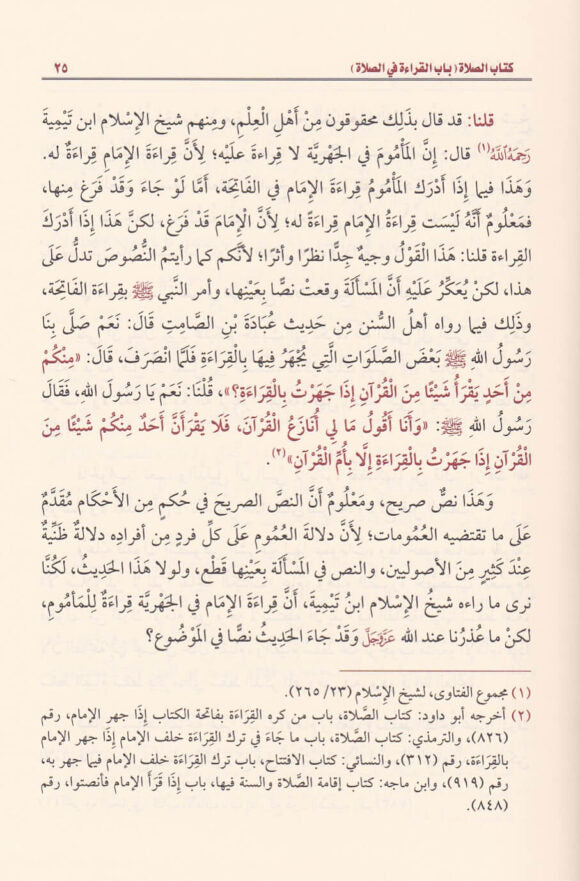 كتاب الصلاة (باب القراءة في الصلاة) ٢٥
قلنا: قد قال بذَلِك محقوقون مِنْ أَهْلِ الْعِلْمِ، ومنهم شيخ الإِسْلام ابن تَيْمِيةَ
رَحِمَهُ اللَّهُ(١) قال: إِنَّ المَأْمُومَ في الجَهْرِيَّة لا قِراءةَ علَيْه؛ لِأَنَّ قِراءَةَ الإِمَامِ قِراءةٌ له.
وَهَذَا فيما إِذَا أَدْرَك المَأْمُومُ قِراءَةَ الإِمَام في الفَاتِحَة، أَمَّا لَوْ جَاءَ وَقَدْ فَرَغَ منها،
فمَعْلُومٌ أَنَّهُ لَيْسَت قِراءةُ الإِمَام قِراءةً له؛ لِأَنَّ الإِمَامَ قَدْ فَرَغ، لكنَّ هَذَا إِذَا أَدْرَكَ
القِراءة قلنا: هَذَا الْقَوْلُ وجيهٌ جِدًّا نظرًا وأثرًا؛ لأنَّكم كما رأيتمُ النُّصُوصَ تدلُّ عَلَى
هذا، لكنْ يُعَكِّرُ عَلَيْهِ أَنَّ المَسْأَلَةَ وقعتْ نصًّا بِعَيْنِها، وأمر النَّبي ﷺ بِقِراءَةِ الفَاتِحَة،
وَذَلِك فيما رواه أهلُ السُّنن مِن حَدِيث عُبَادَةَ بْنِ الصَّامِتِ قَالَ: نَعَمْ صَلَّى بِنَا
رَسُولُ اللهِ ﷺ بَعْضَ الصَّلَوَاتِ الَّتِي يُجْهَرُ فِيهَا بِالْقِرَاءَةِ فَلَمَّا انْصَرَفَ، قَالَ: «مِنْكُمْ
مِنْ أَحَدٍ يَقْرَأُ شَيْئًا مِنَ الْقُرْآنِ إِذَا جَهَرْتُ بِالْقِرَاءَةِ؟»، قُلْنَا: نَعَمْ يَا رَسُولَ اللهِ، فَقَالَ
رَسُولُ اللهِ ﷺ: «وَأَنَا أَقُولُ مَا لِي أُنَازَعُ الْقُرْآنَ، فَلَا يَقْرَأَنَّ أَحَدٌ مِنْكُمْ شَيْئًا مِنَ
الْقُرْآنِ إِذَا جَهَرْتُ بِالْقِرَاءَةِ إِلَّا بِأُمِّ الْقُرْآنِ»(٢).
وَهَذَا نصٌّ صريح، ومَعْلُومٌ أَنَّ النصَّ الصريحَ في حُكمٍ مِن الأَحْكامِ مُقَدَّمٌ
عَلَى ما تقتضيه العُمُومات؛ لِأَنَّ دلالةَ العُمُومِ عَلَى كلِّ فردٍ من أفرادِه دلالةٌ ظَنِّيَّةٌ
عِنْدَ كَثِيرٍ مِنَ الأصوليين، والنص في المَسْأَلَة بِعَيْنِها قَطْع، ولولا هَذَا الحَدِيثُ، لَكُنَّا
نرى ما راءه شيخُ الإِسْلام ابنُ تَيْمِيةَ، أَنَّ قِراءَةَ الإِمَام في الجَهْرِيَّة قِراءَةٌ لِلْمَأْمُومِ،
لكنْ ما عُذرُنا عند الله عَزَّوَجَلَّ وَقَدْ جَاءَ الحَدِيثُ نصًّا في المَوْضُوع؟
(١) مجموع الفتاوى، لشيخ الإِسْلام (٢٣/ ٢٦٥).
(٢) أخرجه أبو داود: كتاب الصَّلاة، باب من كره القِرَاءَة بفاتحة الكتاب إِذَا جهر الإمام، رقم
(٨٢٦)، والترمذي: كتاب الصَّلاة، باب ما جَاءَ في ترك القِرَاءَة خلف الإمام إِذَا جهر الإمام
بالقِرَاءَة، رقم (٣١٢)، والنسائي: كتاب الافتتاح، باب ترك القِرَاءَة خلف الإمام فيما جهر به،
رقم (٩١٩)، وابن ماجه: كتاب إقامة الصَّلاة والسنة فيها، باب إِذَا قَرَأَ الإمام فأنصتوا، رقم
(٨٤٨).